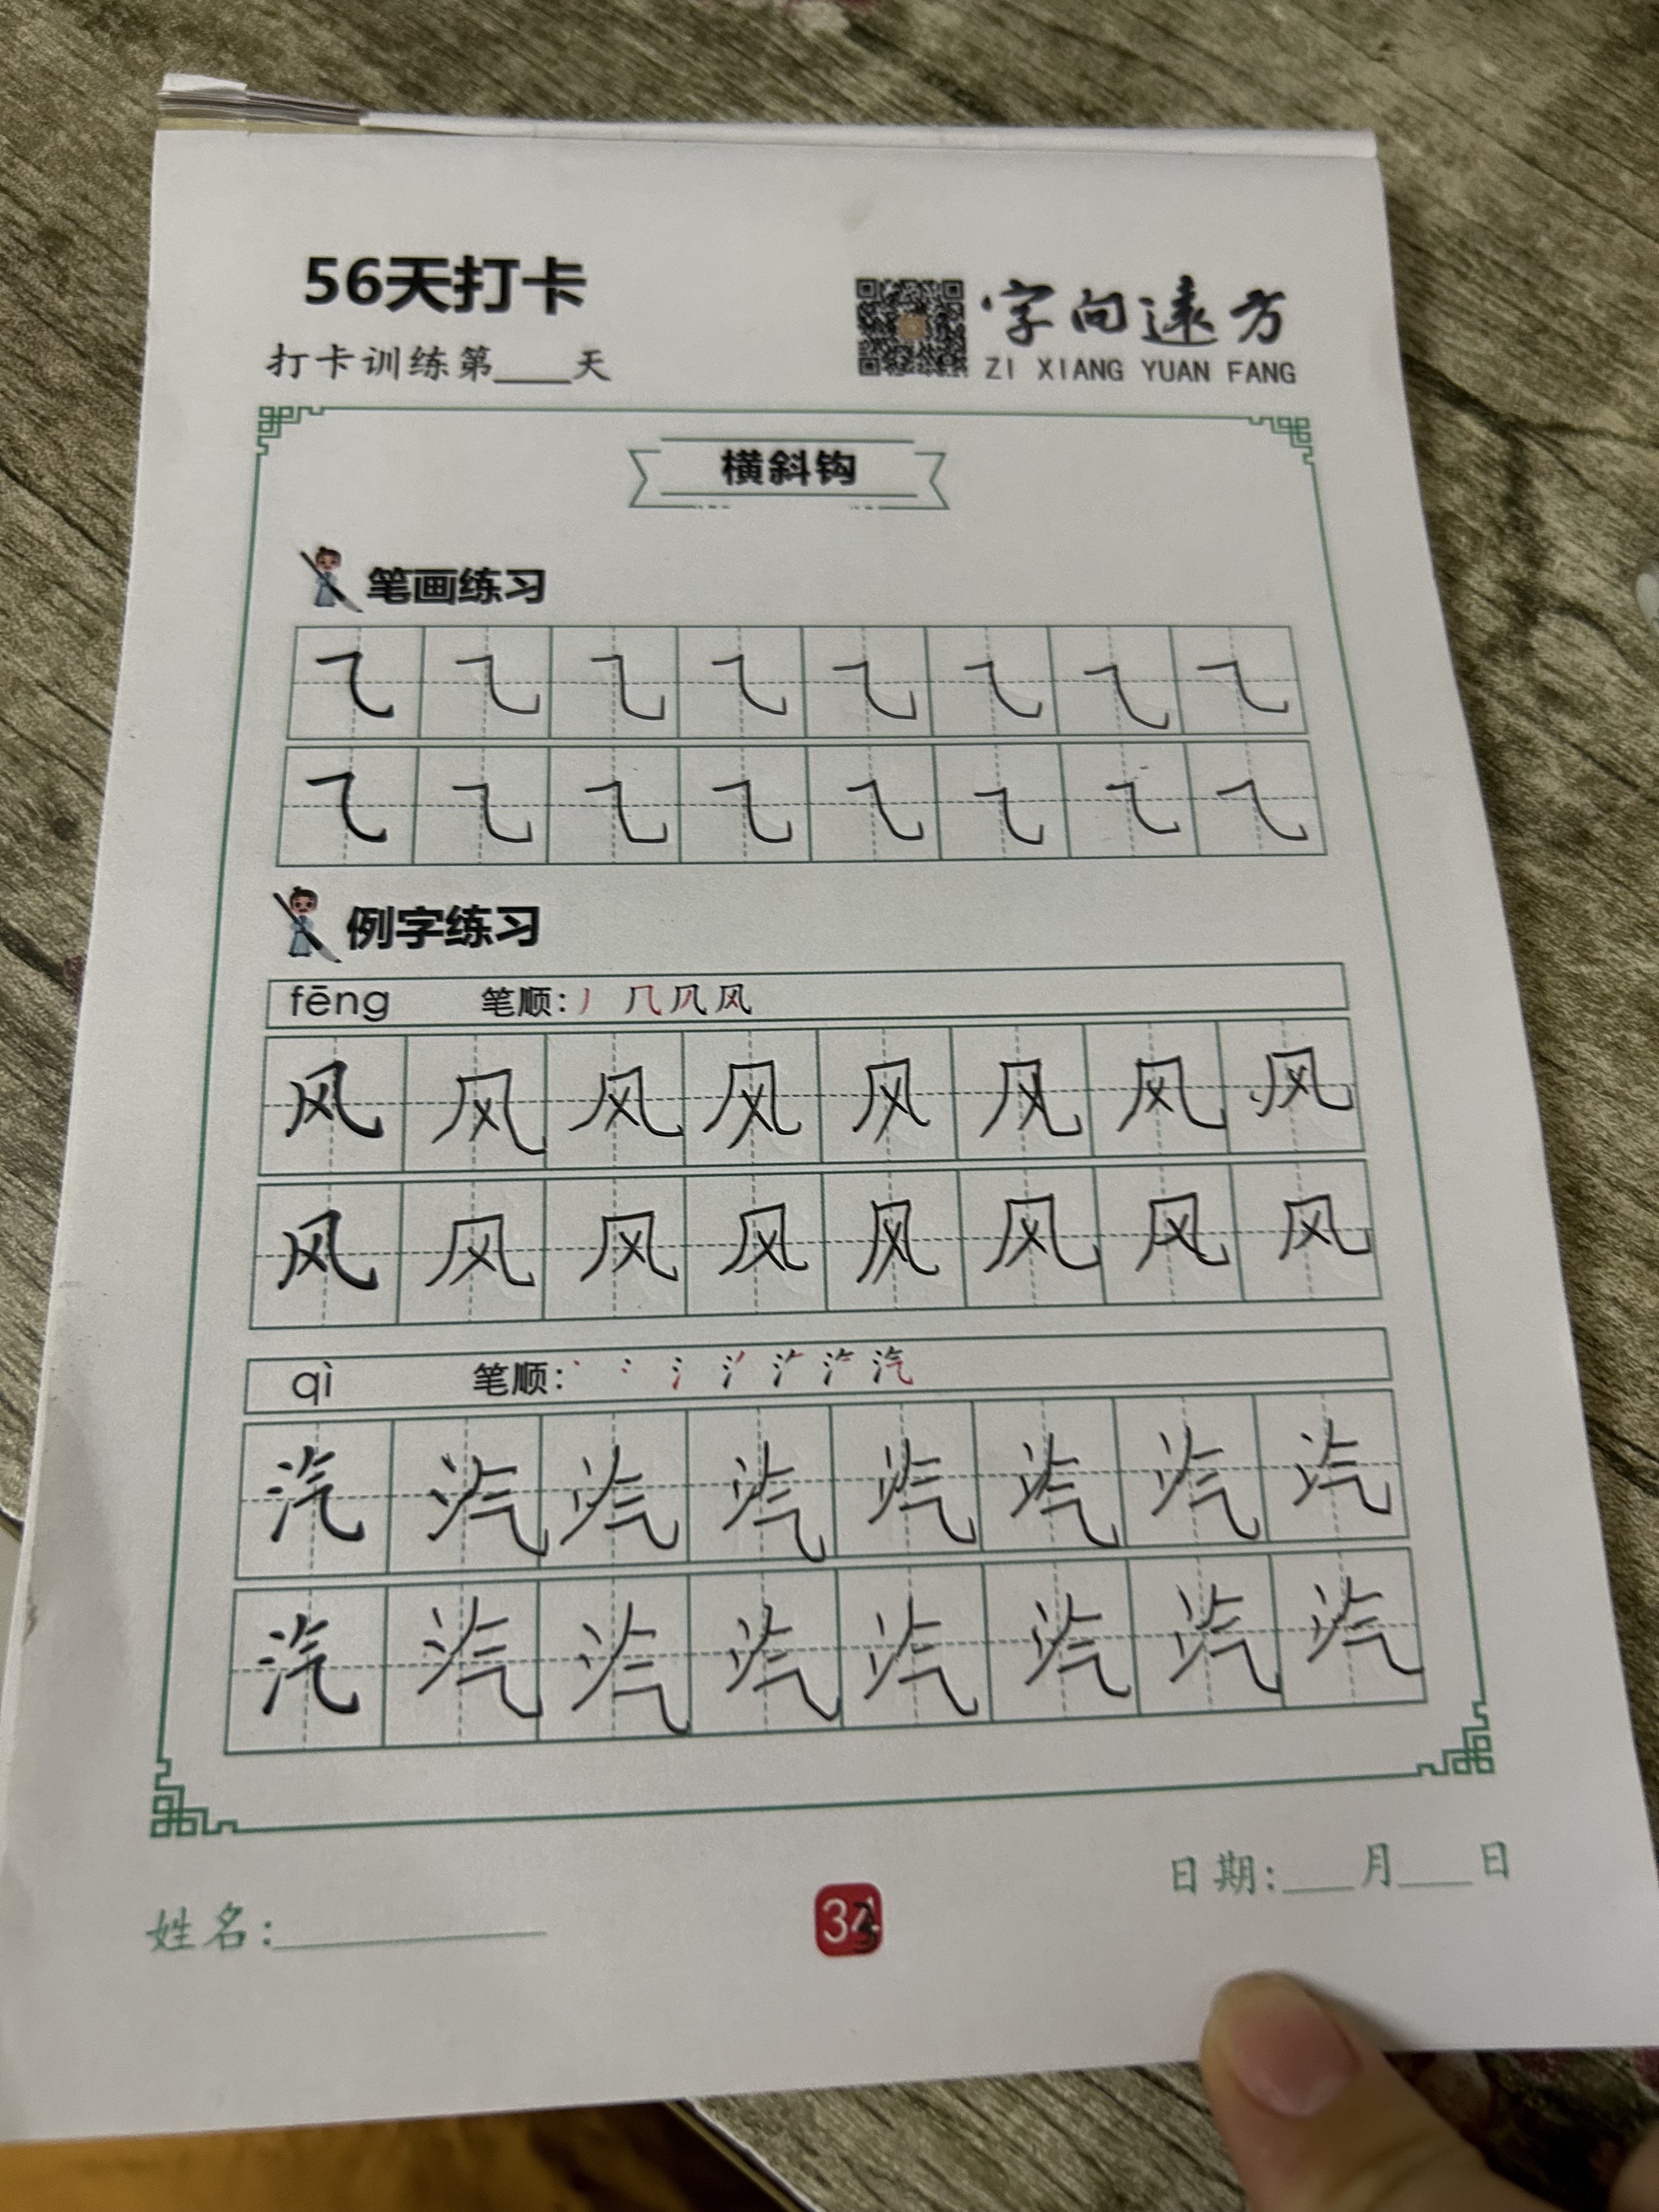 56天打卡
打卡训练第___天
字向遠方
ZI XIANG YUAN FANG
横斜钩
笔画练习
⺄ ⺄ ⺄ ⺄ ⺄ ⺄ ⺄ ⺄
⺄ ⺄ ⺄ ⺄ ⺄ ⺄ ⺄ ⺄
例字练习
fēng 笔顺: 丿 ⺇ 风
风 风 风 风 风 风 风 风
风 风 风 风 风 风 风 风
qì 笔顺: 丶 冫 氵 汽
汽 汽 汽 汽 汽 汽 汽 汽
汽 汽 汽 汽 汽 汽 汽 汽
姓名:
日期:___月___日